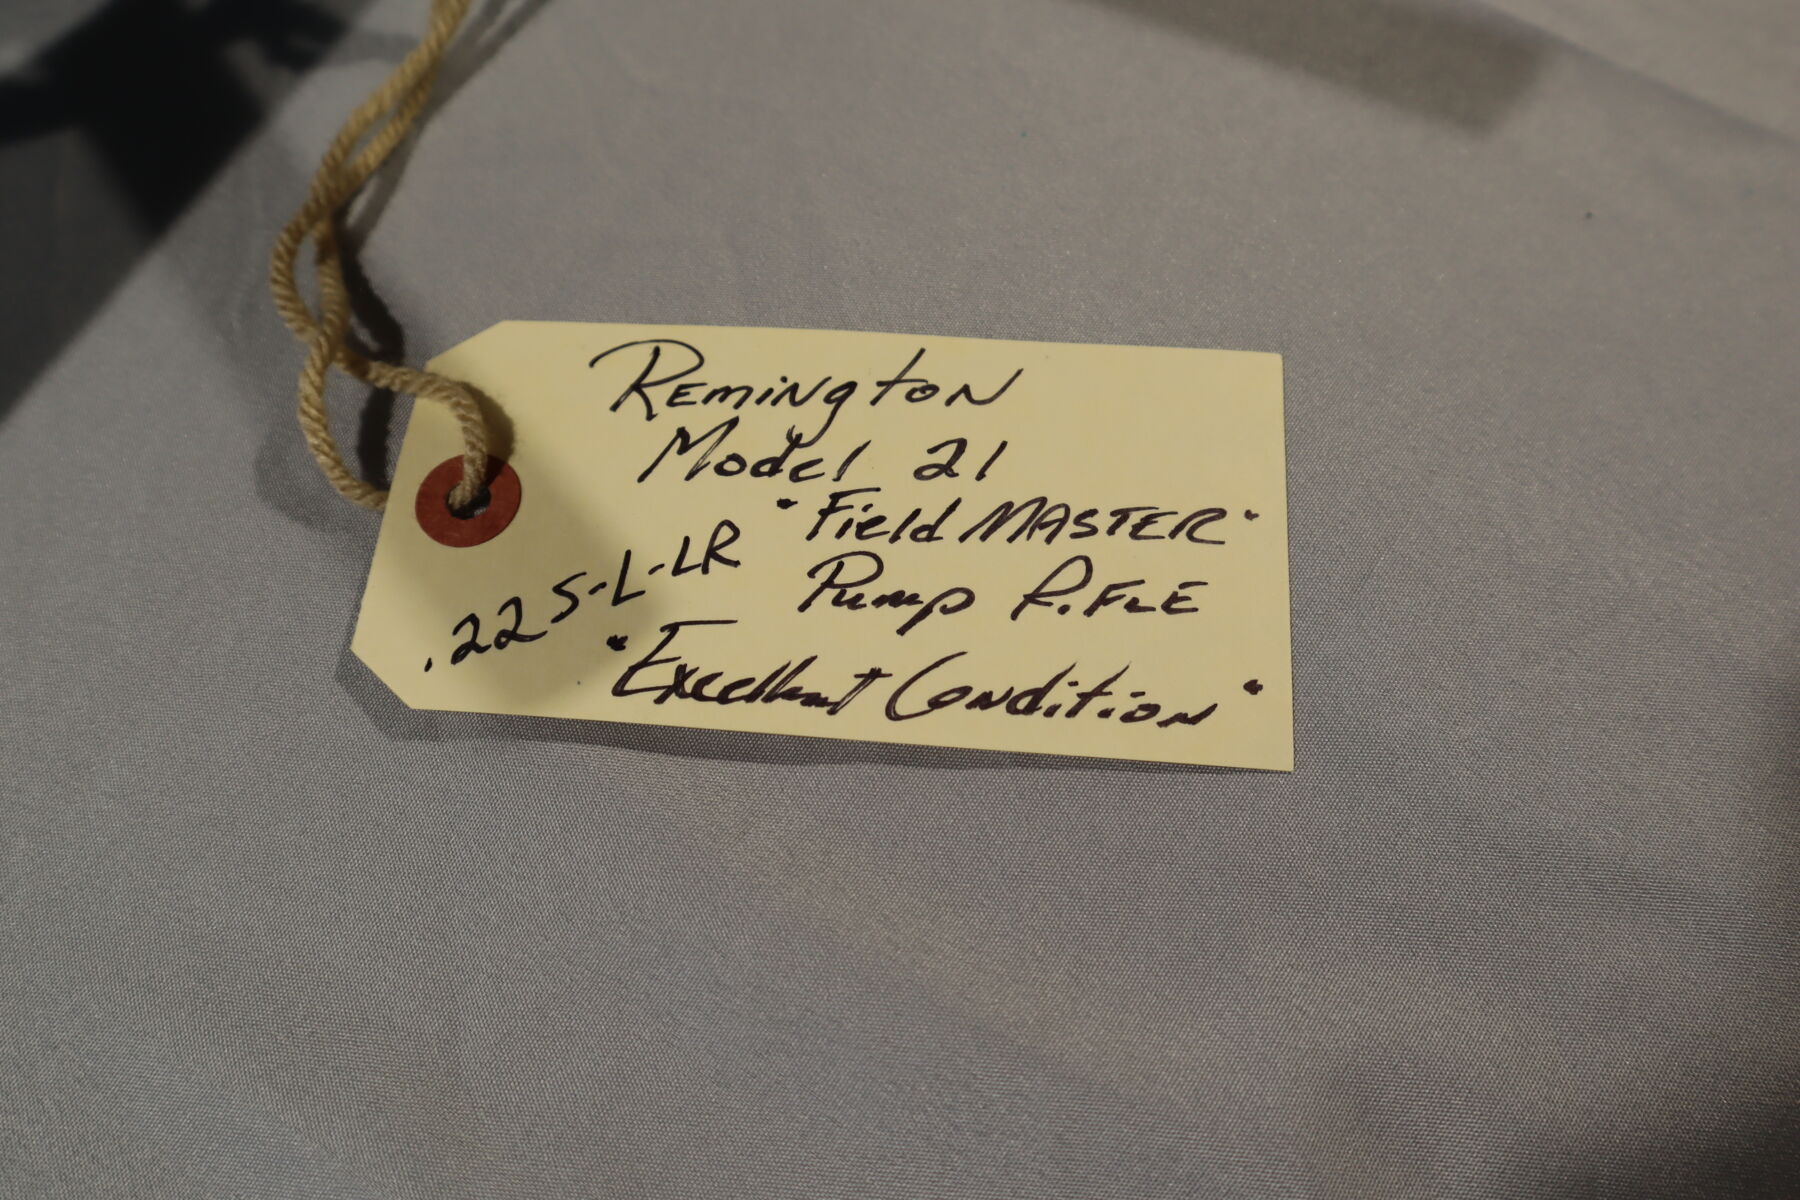 Remington
Model 21
"Field Master"
.22 S-L-LR
Pump Rifle
"Excellent Condition"